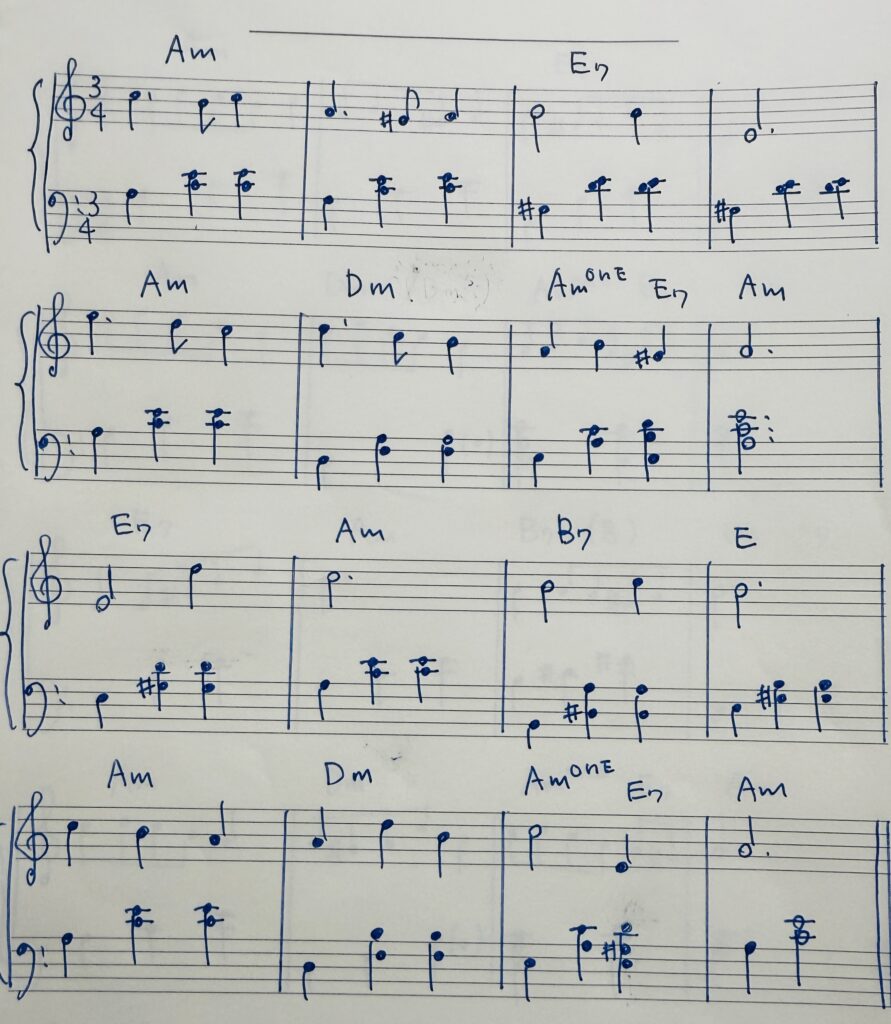 Am E7
3 3
4 4
Am Dm Am onE E7 Am
E7 Am B7 E
Am Dm Am onE E7 Am